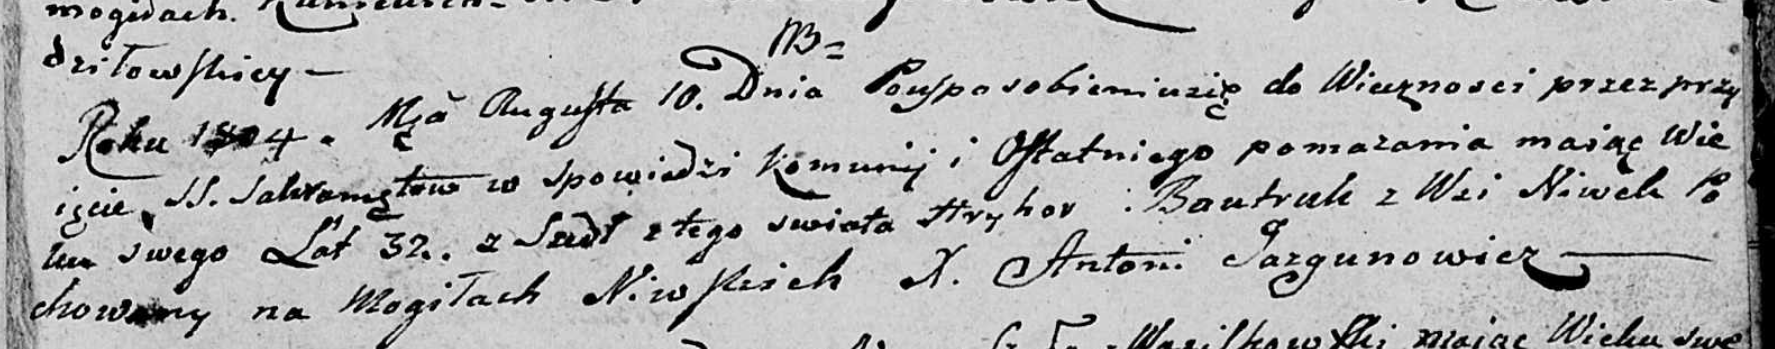 mogiłach.
dziłowskiey —
NB =
Roku 1804. Mca Augusta 10. Dnia Pousposobieniusię do Wiecznosci przez przy
ięcie SS. Sakramętow w spowiedzi komunij i Ostatniego pomazania maiąc Wie
ku swego Lat 32.. z Szedł z tego swiata Hryhor Bautruk z Wsi Niwek Po
chowany na Mogiłach Niwskich X. Antoni Jazgunowicz —
Wasilkowski maiąc Wieku swe